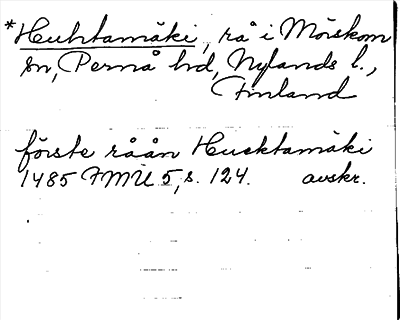 *Huhtamäki, rå i Mörskom
sn, Pernå hd, Nylands l.,
Finland
förste råån Hucktamäki
1485 FMU 5, s. 124. avskr.